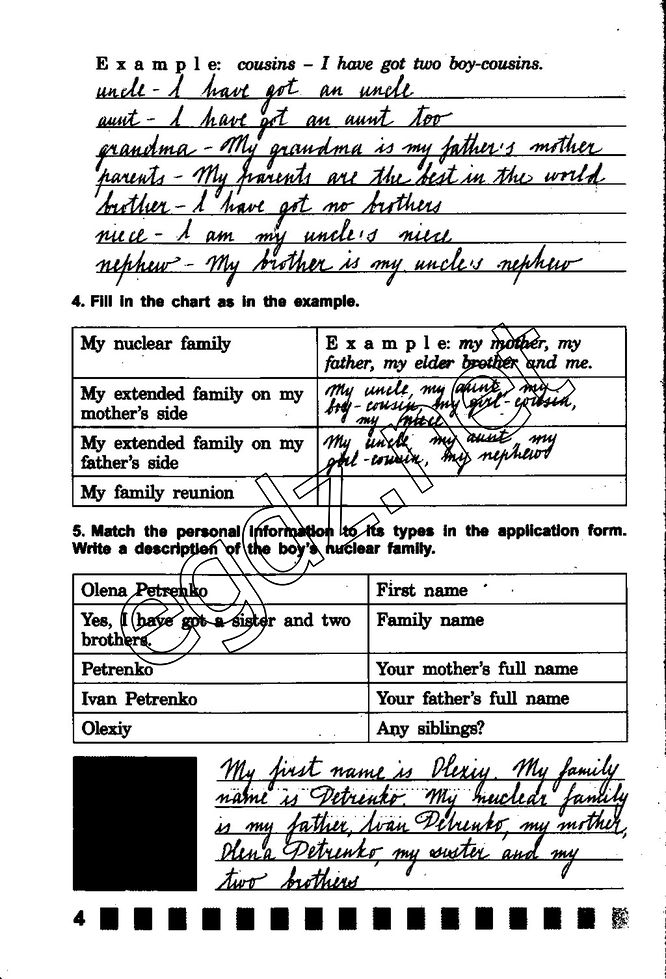 E x a m p l e: cousins – I have got two boy-cousins.
uncle – I have got an uncle
aunt – I have got an aunt too
grandma – My grandma is my father's mother
parents – My parents are the best in the world
brother – I have got no brothers
niece – I am my uncle's niece
nephew – My brother is my uncle's nephew
4. Fill in the chart as in the example.
My nuclear family
E x a m p l e: my mother, my
father, my elder brother and me.
My extended family on my
mother's side
My uncle, my aunt, my
boy-cousin, my girl-cousin,
my niece
My extended family on my
father's side
My uncle, my aunt, my
girl-cousin, my nephew
My family reunion
5. Match the personal information to its types in the application form.
Write a description of the boy's nuclear family.
Olena Petrenko
First name
Yes, I have got a sister and two
brothers.
Family name
Petrenko
Your mother's full name
Ivan Petrenko
Your father's full name
Olexiy
Any siblings?
My first name is Olexiy. My family
name is Petrenko. My nuclear family
is my father, Ivan Petrenko, my mother,
Olena Petrenko, my sister and my
two brothers
4
egdz.net